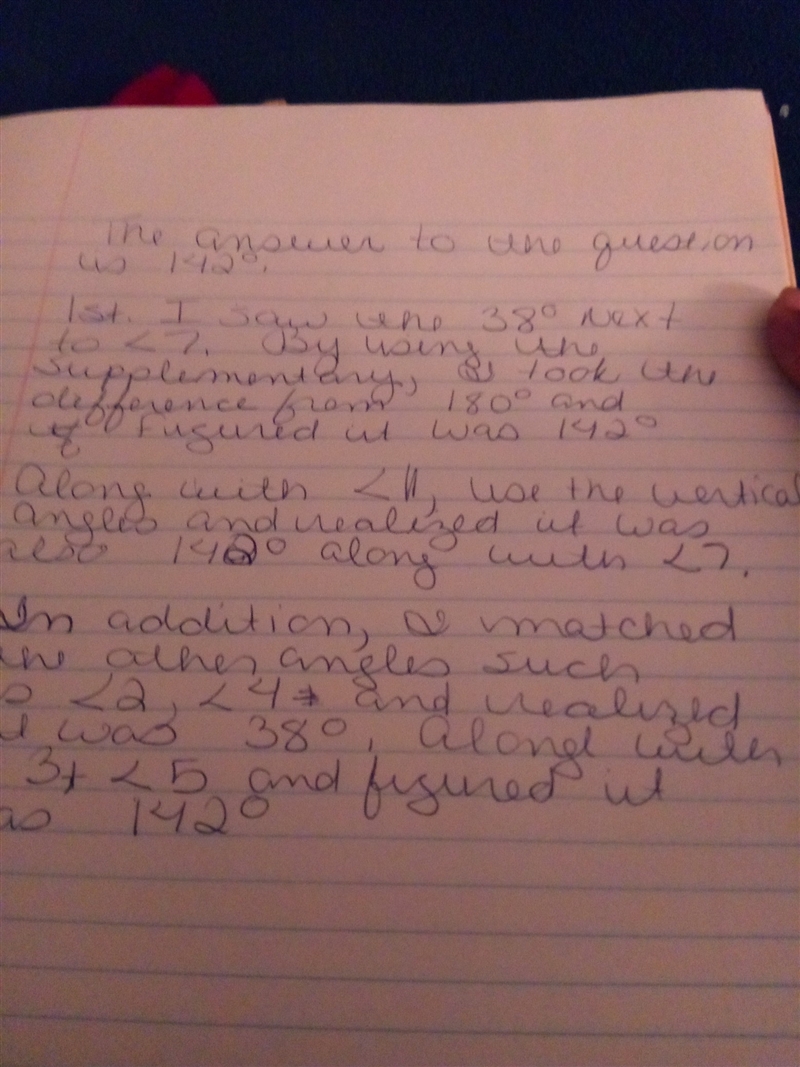 The answer to the question
is 142°.
1st. I saw the 38° Next
to <7. By using the
supplementary, I took the
difference from 180° and
figured it was 142°
Along with <11, use the vertical
angles and realized it was
also 142° along with <7.
In addition, I matched
the other angles such
<2, <4 and realized
it was 38°, Along with
3, <5 and figured it
as 142°